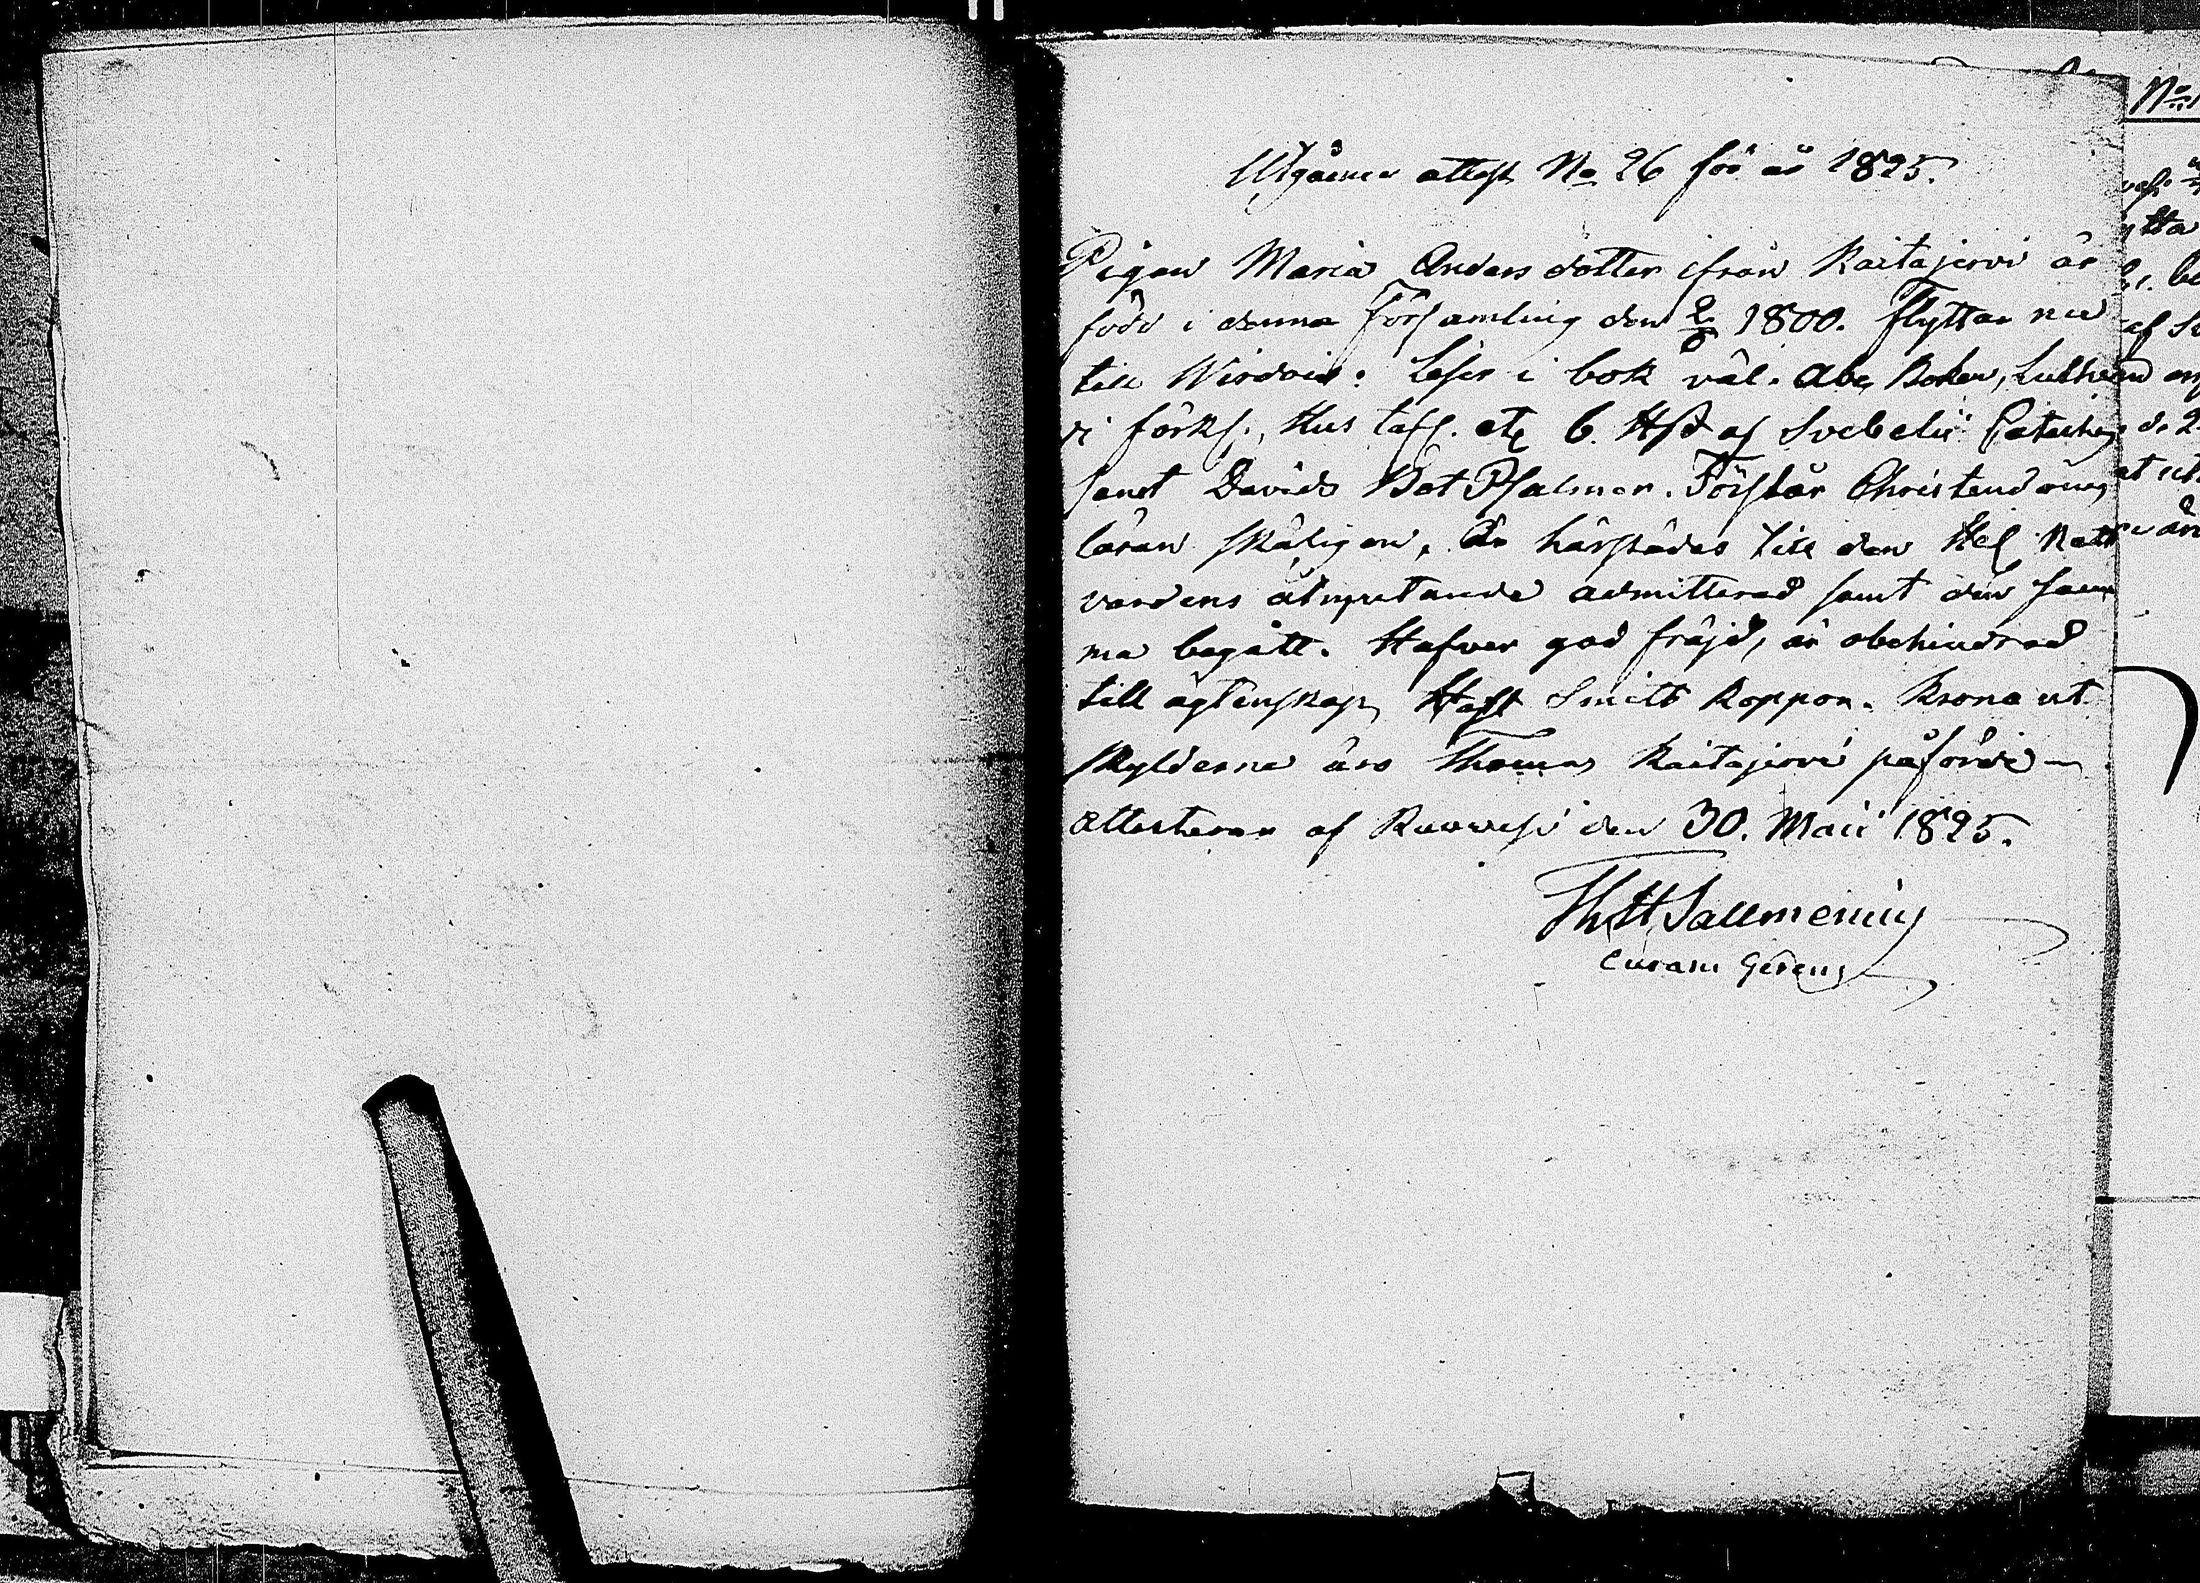 Utgående attest No 26 för år 1825.
Pigan Maria Anders dotter ifrån Kaitajervi är
född i denna Församling den 2/8 1800. flyttar nu
till Wirdois: Läser i bok väl. Abc Boken, Lutheri
förkl., Hus tafl. etc 6. Hst af Svebelii Cateches
samt Davids Bot Psalmer. Förstår Christendoms
läran skäligen, Är härstädes till den Hel. Natt
vardens åtnjutande admitterad samt den sam
ma begått. Hafver god fräjd, är obehindrad
till ägtenskap, Haft Smitt koppor. Krono ut
skylderna äro Thomas Kaitajervi påförde
Attesteras af Ruowesi den 30. Maii 1825.
Th. H. Sallmenius
Curam Gerens
No
ytta
be
af